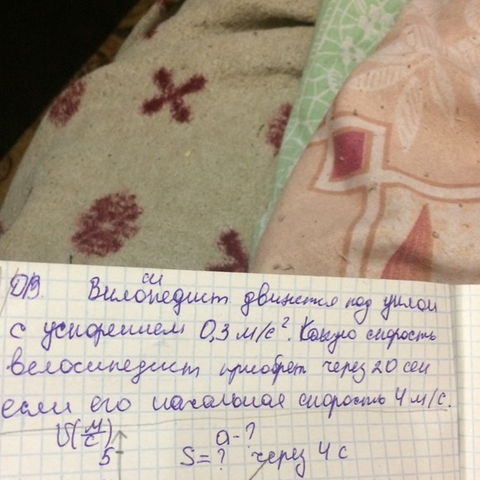 ДЗ. Вилосипедист движется под уклон
с ускорением 0,3 м/с². Какую скорость
велосипедист приобрет через 20 сек
если его начальная скорость 4 м/с.
V(м/с) a-?
5 S=? через 4 с